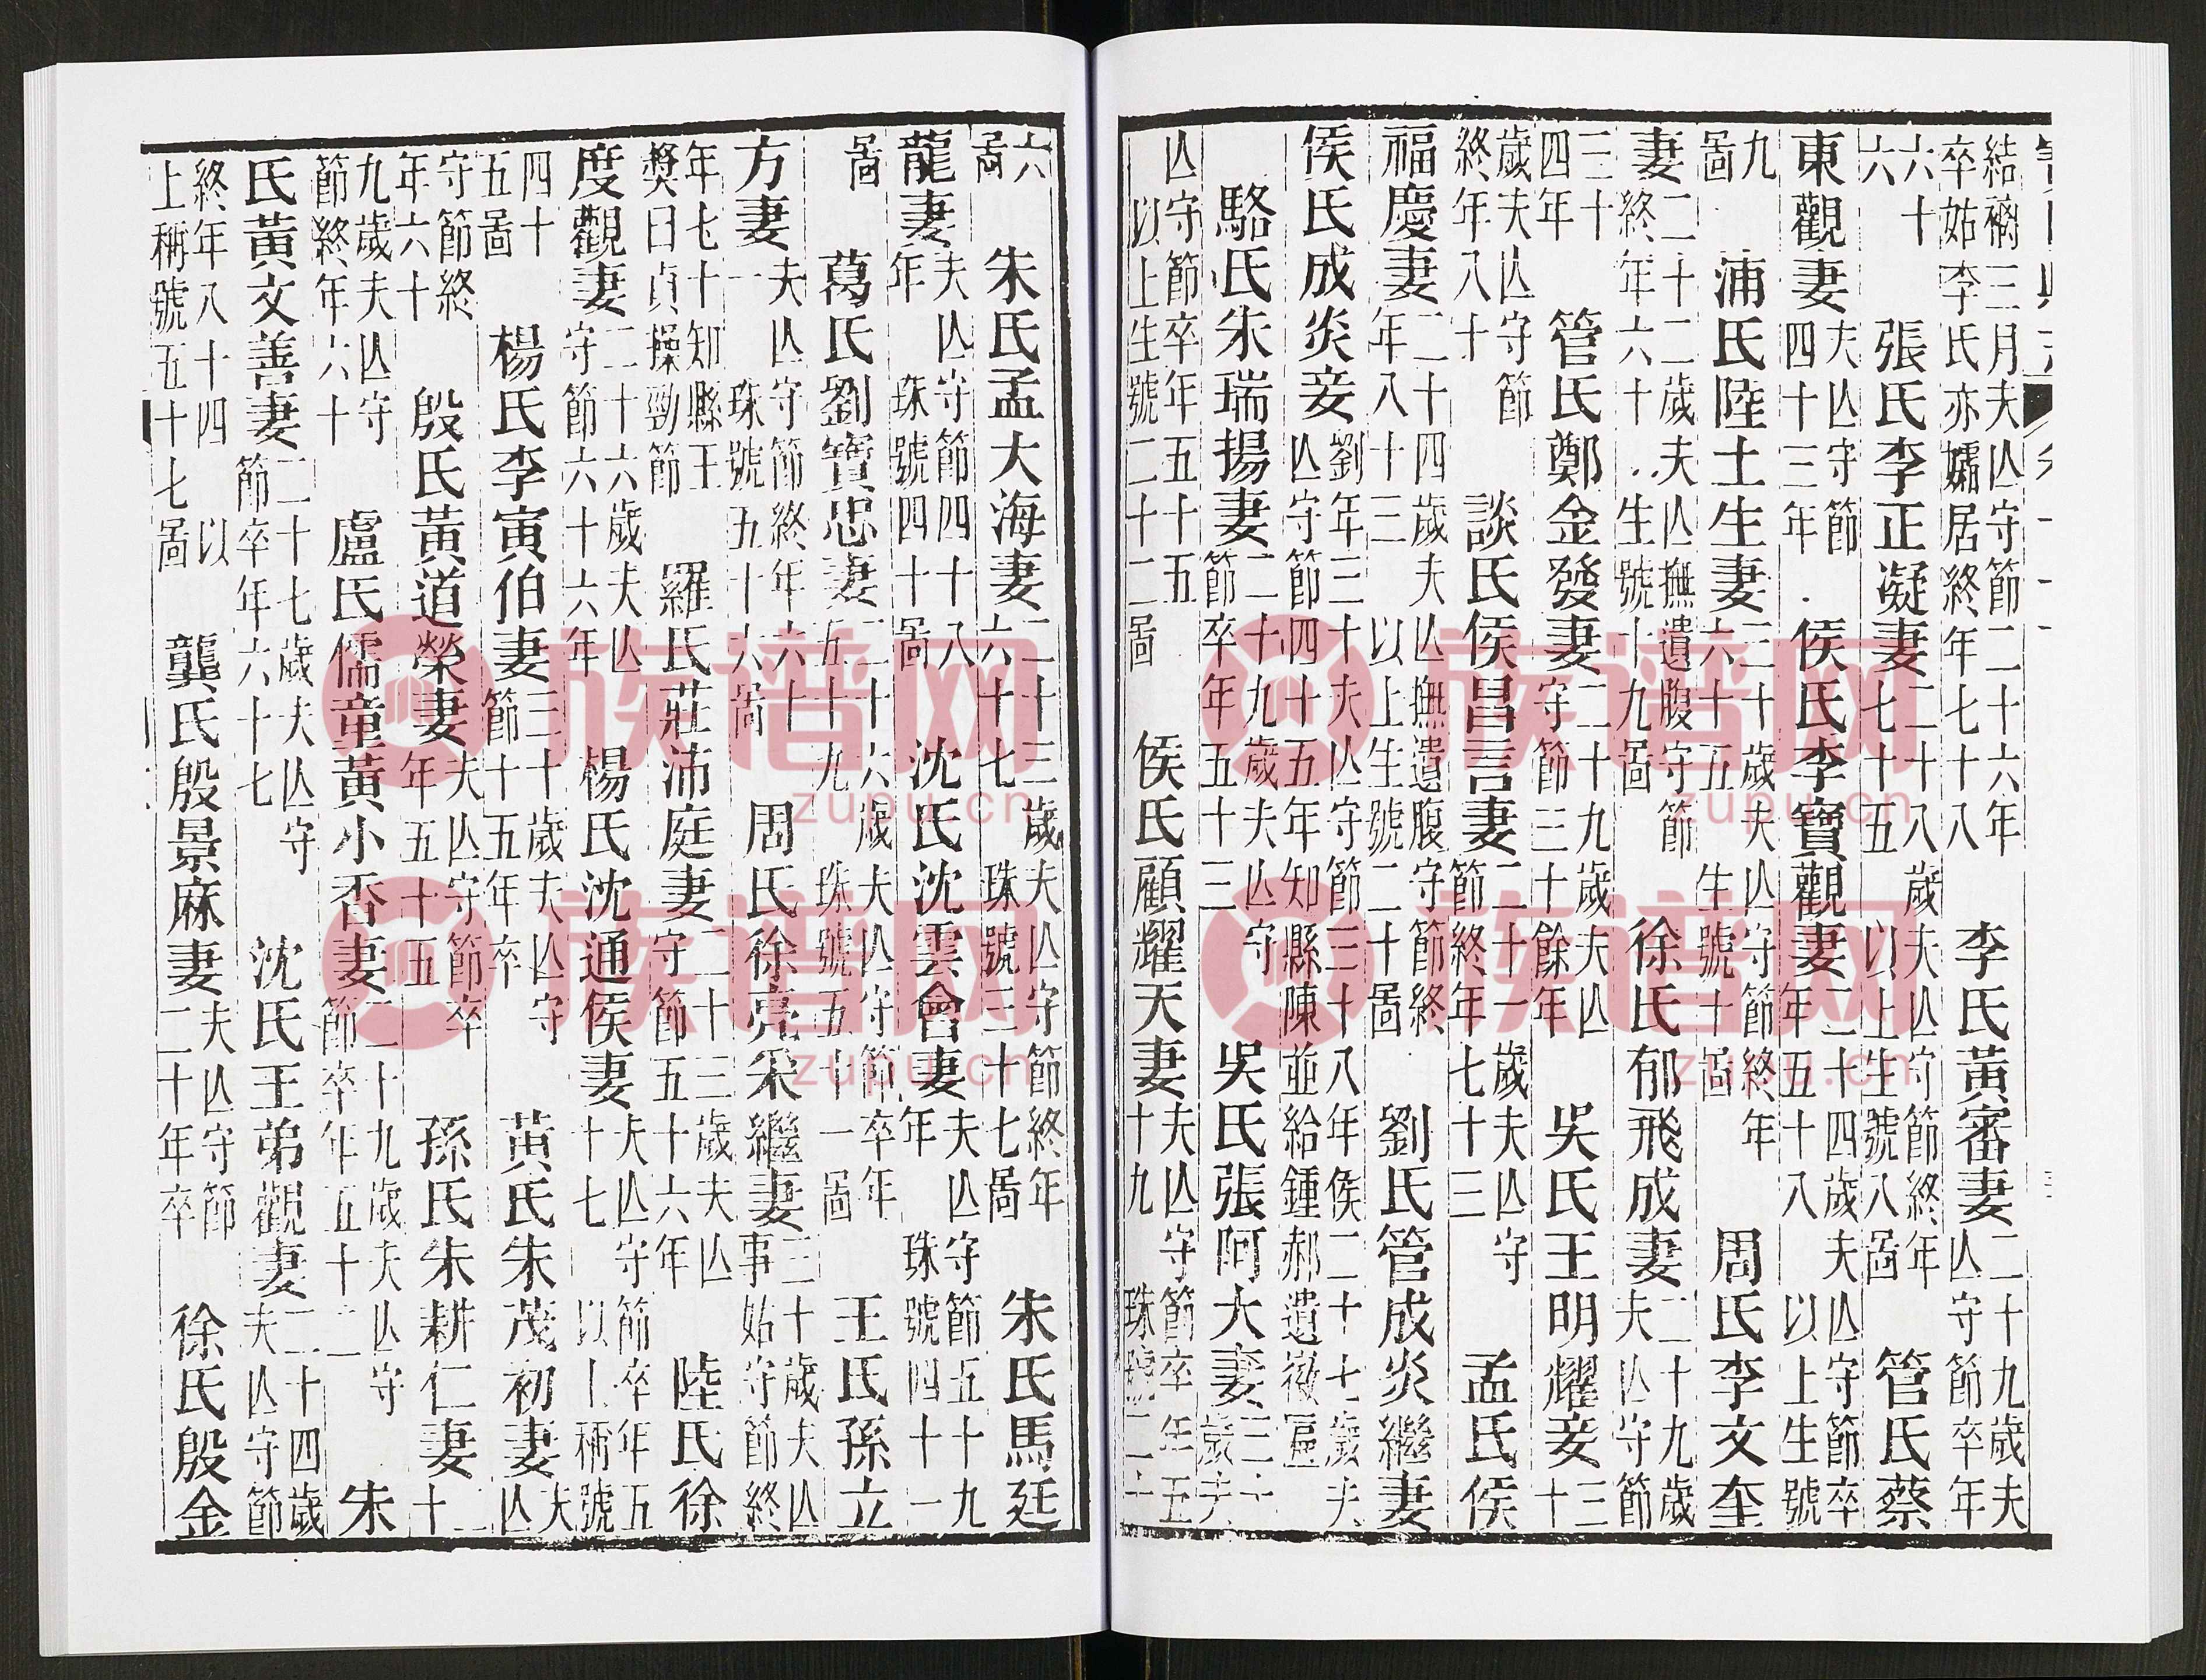 結褵三月夫亾守節二十六年
卒姑李氏亦孀居終年七十八
李氏黃審妻
二十九歲夫
亾守節卒年
六十
六
張氏李正凝妻
二十八歲夫亾守節終年
七十五 以上生號八啚
管氏蔡
東觀妻
夫亾守節
四十三年
侯氏李寶觀妻
二十四歲夫亾守節卒
年五十八 以上生號
九
啚
浦氏陸土生妻
二十歲夫亾守節終年
六十五 生號十啚
周氏李文奎
妻
二十二歲夫亾撫遺腹守節
終年六十 生號十九啚
徐氏郁飛成妻
二十九歲
夫亾守節
三十
四年
管氏鄭金發妻
二十九歲夫亾
守節三十餘年
吳氏王明耀妾
三
十
歲夫亾守節
終年八十
談氏侯昌言妻
二十一歲夫亾守
節終年七十三
孟氏侯
福慶妻
二十四歲夫亾撫遺腹守節終
年八十三 以上生號二十啚
劉氏管成炎繼妻
侯氏成炎妾
劉年三十夫亾守節三十八年侯二十七歲夫
亾守節四十五年知縣陳並給鍾郝遺徽匾
駱氏朱瑞揚妻
二十九歲夫亾守
節卒年五十三
吳氏張阿大妻
三十
歲夫
亾守節卒年五十五
以上生號二十二啚
侯氏顧耀天妻
夫亾守節卒年五
十九 珠號二十
六
啚
朱氏孟大海妻
二十三歲夫亾守節終年
六十七 珠號三十七啚
朱氏馬廷
龍妻
夫亾守節四十八
年 珠號四十啚
沈氏沈雲會妻
夫亾守節五十九
年 珠號四十一
啚
葛氏劉寶忠妻
二十六歲夫亾守節卒年
五十九 珠號五十一啚
王氏孫立
方妻
夫亾守節終年六十
一 珠號五十六啚
周氏徐亮采繼妻
三十歲夫亾
事姑守節終
年七十知縣王
奬曰貞操勁節
羅氏莊沛庭妻
二十三歲夫亾
守節五十六年
陸氏徐
度觀妻
二十六歲夫亾
守節六十六年
楊氏沈通侯妻
夫亾守節卒年五
十七 以上稱號
四十
五啚
楊氏李寅伯妻
三十歲夫亾守
節十五年卒
黃氏朱茂初妻
夫
亾
守節終
年六十
殷氏黃道榮妻
夫亾守節卒
年五十五
孫氏朱耕仁妻
二
十
九歲夫亾守
節終年六十
盧氏儒童黃小香妻
二十九歲夫亾守
節卒年五十二
朱
氏黃文善妻
二十七歲夫亾守
節卒年六十七
沈氏王弟觀妻
二十四歲
夫亾守節
終年八十四 以
上稱號五十七啚
龔氏殷景麻妻
夫亾守節
二十年卒
徐氏殷金
族谱网
zupu.cn
族谱网
zupu.cn
族谱网
zupu.cn
族谱网
zupu.cn